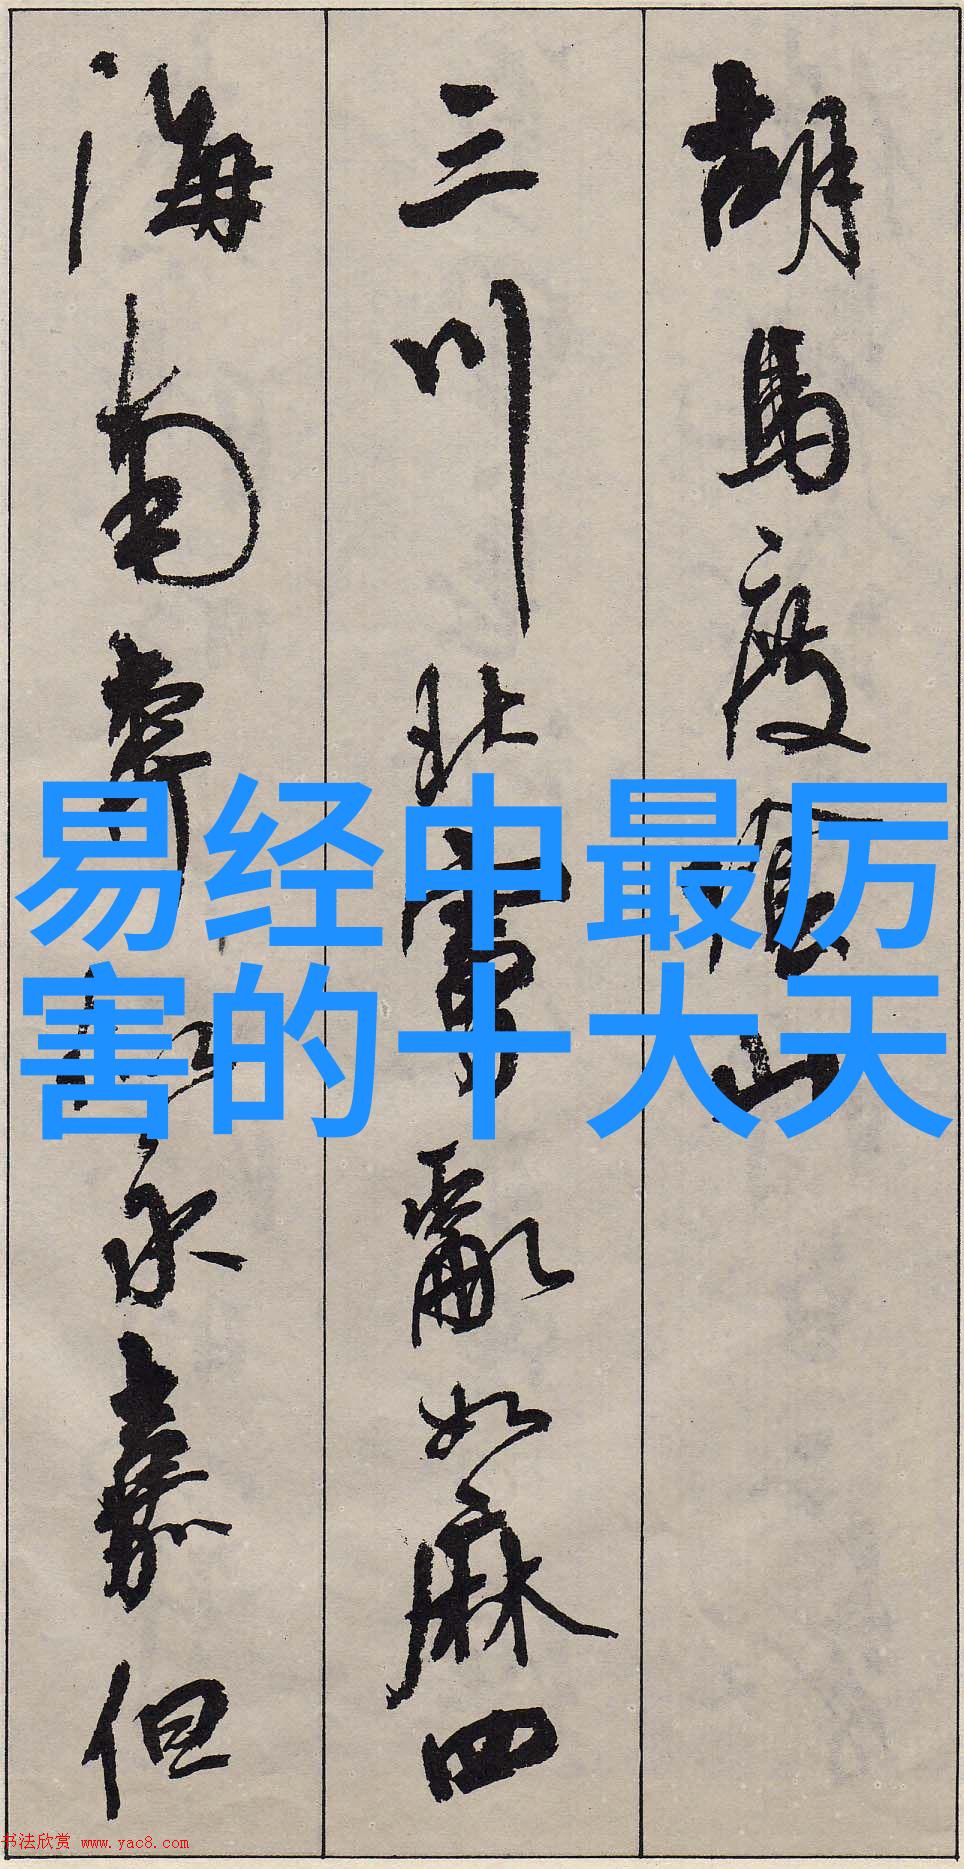 胡马度阴山
三川北虏乱如麻四
海南奔似永嘉但
易经中最厉
害的十大天
书法欣赏 www.yac8.com